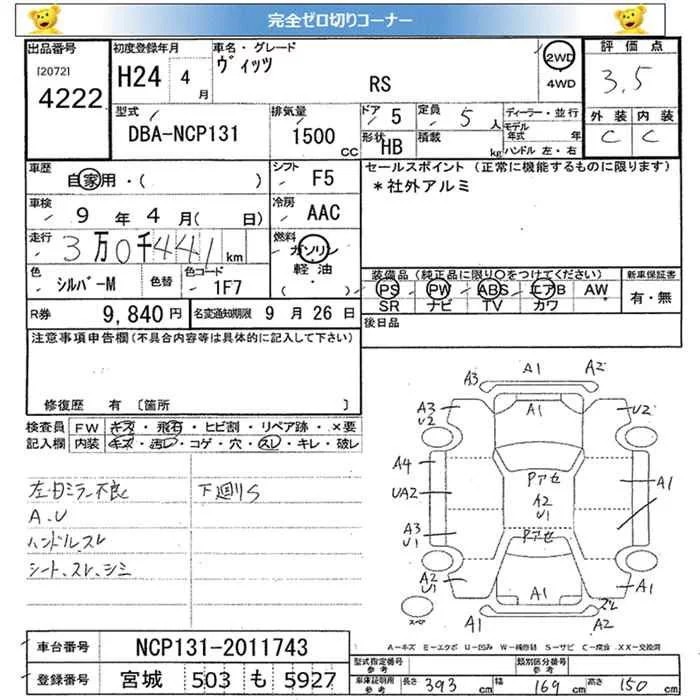 完全ゼロ切りコーナー
出品番号 [2072] 4222
初度登録年月 H24 4月
車名・グレード ヴィッツ RS
2WD 4WD
評価点 3.5
型式 DBA-NCP131
排気量 1500 CC
ドア 5
定員 5人
形状 HB
積載 kg
ディーラー・並行
モデル年式 年
ハンドル 左・右
外装 C
内装 C
車歴 自家用・( )
シフト F5
車検 9年 4月( 日)
冷房 AAC
走行 3万0千441km
燃料 ガソリン 軽油 ( ・ )
色 シルバーM
色替
色コード 1F7
R券 9,840円
名変通知期限 9月26日
セールスポイント (正常に機能するものに限ります)
*社外アルミ
装備品 (純正品に限り○をつけてください)
PS PW ABS エアB AW
SR ナビ TV カワ
新車保証書 有・無
後日品
注意事項申告欄(不具合内容等は具体的に記入して下さい)
修復歴 有 〔箇所 〕
検査員記入欄
FW キズ・飛石・ヒビ割・リペア跡・×要
内装 キズ・汚レ・コゲ・穴・スレ・キレ・破レ
左・右ミラー不良
A、U
ハンドル、スレ
シート、スレ、シミ
下廻りS
A3 A1 A2
A3 U2 A1 U2
A4 Pアセ
UA2 A2 U1 A1
A3 U1 Pアセ
A2 U1 A1 A1
スペア A1 スレ A2
A-キズ E-エクボ U-凹み W-補修跡 S-サビ C-腐食 XX-交換済
車台番号 NCP131-2011743
登録番号 宮城 503 も 5927
型式指定番号 参考
類別区分番号 参考
車庫証明用 参考 長さ 393cm 幅 169cm 高さ 150cm